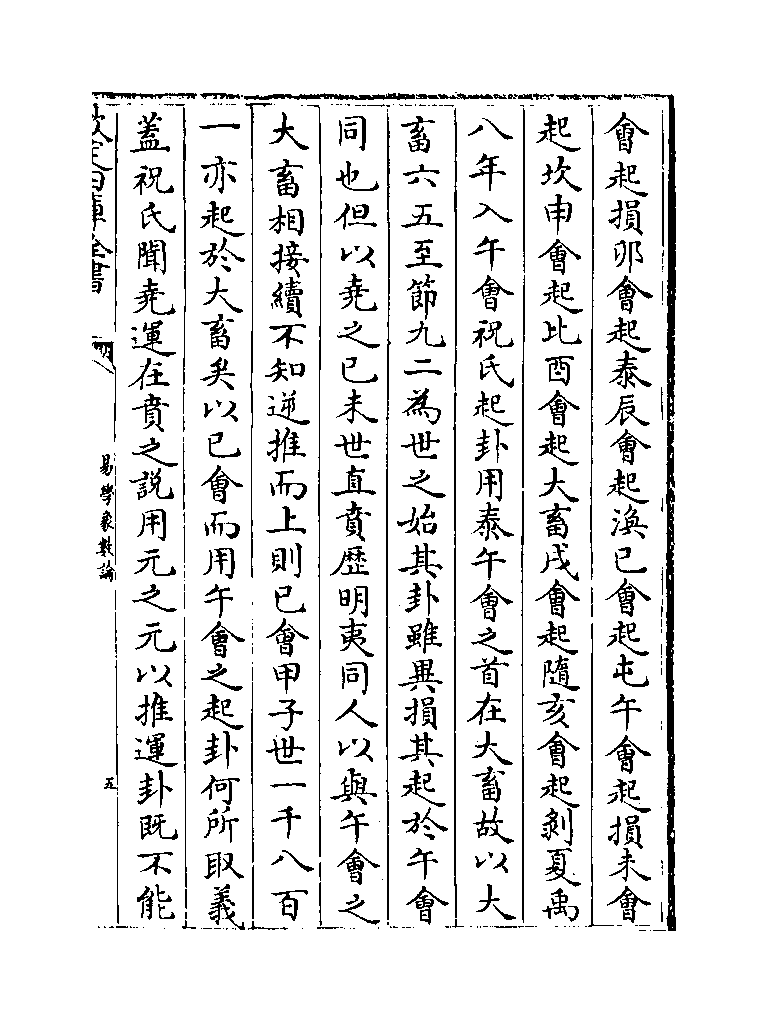 會起損卯會起泰辰會起渙巳會起屯午會起損未會
起坎申會起比酉會起大畜戌會起隨亥會起剝夏禹
八年入午會祝氏起卦用泰午會之首在大畜故以大
畜六五至節九二為世之始其卦雖異損其起於午會
同也但以堯之已未世直賁歷明夷同人以與午會之
大畜相接續不知逆推而上則已會甲子世一千八百
一亦起於大畜矣以已會而用午會之起卦何所取義
蓋祝氏聞堯運在賁之說用元之元以推運卦既不能
欽定四庫全書
易學象數論
五